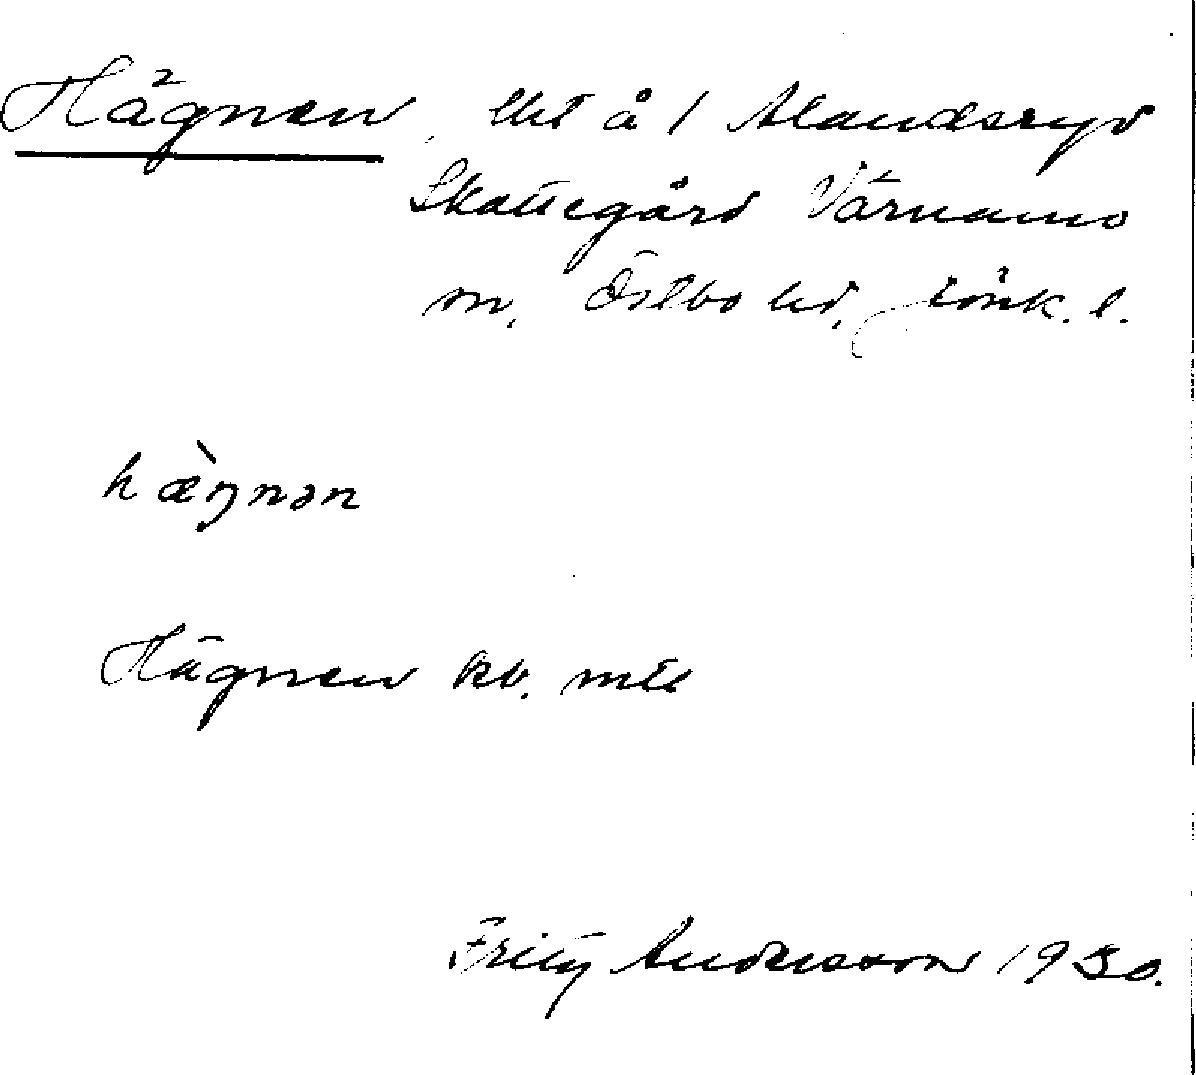 Hägnen, lht å 1 Alandsryd
Skattegård Värnamo
m. Östbo hd, Jönk. l.
hæ̀ŋnən
Hägnen kb. mtl
Fritz Andersson 1930.